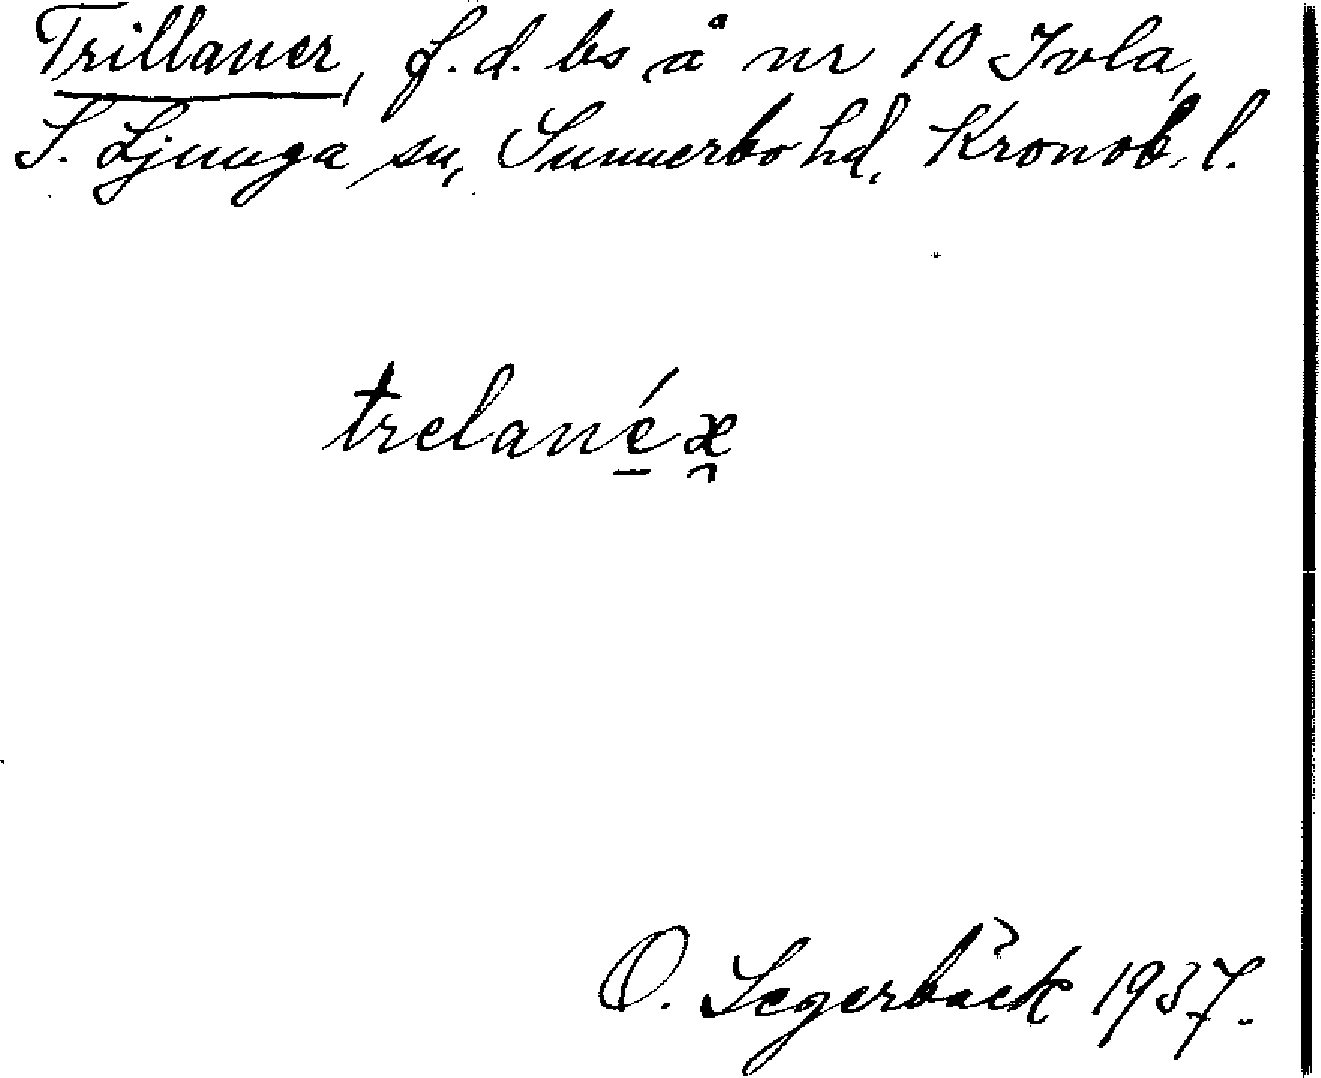 Trillaner, f.d. bs å nr 10 Ivla,
S. Ljunga sn, Sunnerbo hd, Kronob. l.
trelané̱æ̯
O. Segerbäck 1937.